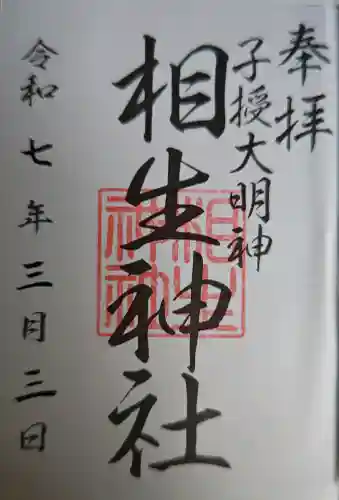 奉拝
子授大明神
相生神社
相生神社
令和七年三月三日